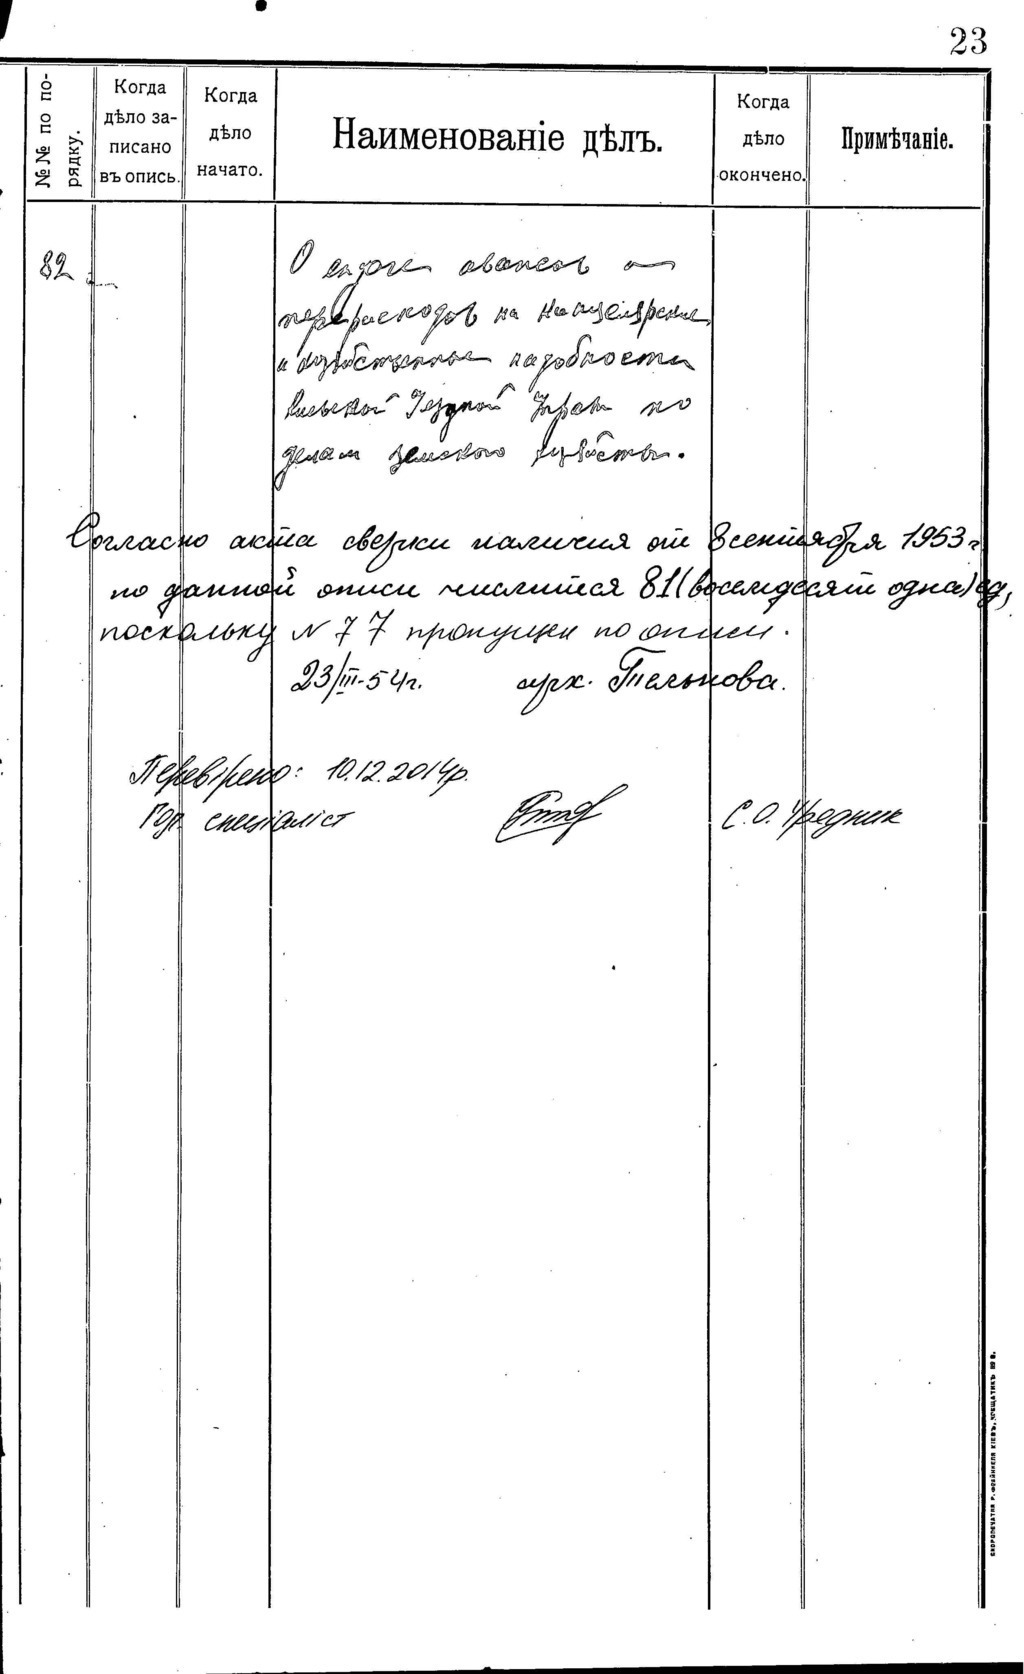 23
№№ по по-
рядку.
Когда
дѣло за-
писано
въ опись.
Когда
дѣло
начато.
Наименованіе дѣлъ.
Когда
дѣло
окончено.
Примѣчаніе.
82
О авансов
перерасходов на Канцелярские
и хозяйственные надобности
Уездной Управы по
делам земского хозяйства.
Согласно акта сверки наличия от 8 сентября 1953 г
по данной описи числится 81 (восемдесят одна) ед,
поскольку № 77 пропущен по описи.
23/III-54г. арх. Тельнова.
Перевірено: 10.12.2014р.
Гол. спеціаліст С.О. Урядник